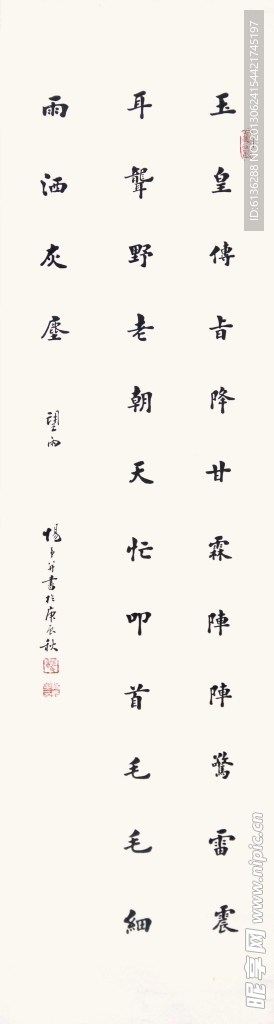 玉皇傳旨降甘霖陣陣驚雷震
耳聾野老朝天忙叩首毛毛細
雨洒灰塵
望雨
書於庚辰秋
ID:6136288 NO:20130624154421745197
昵享网 www.nipic.cn